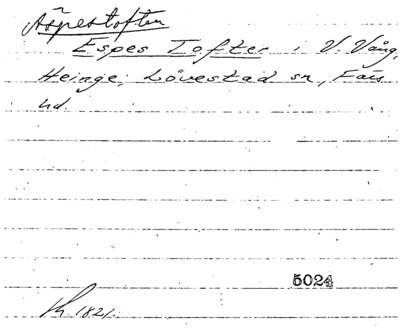 Äspestoften
Espes Tofter i V. Vång,
Heinge, Lövestad sn, Färs
hd.
5024
1821.